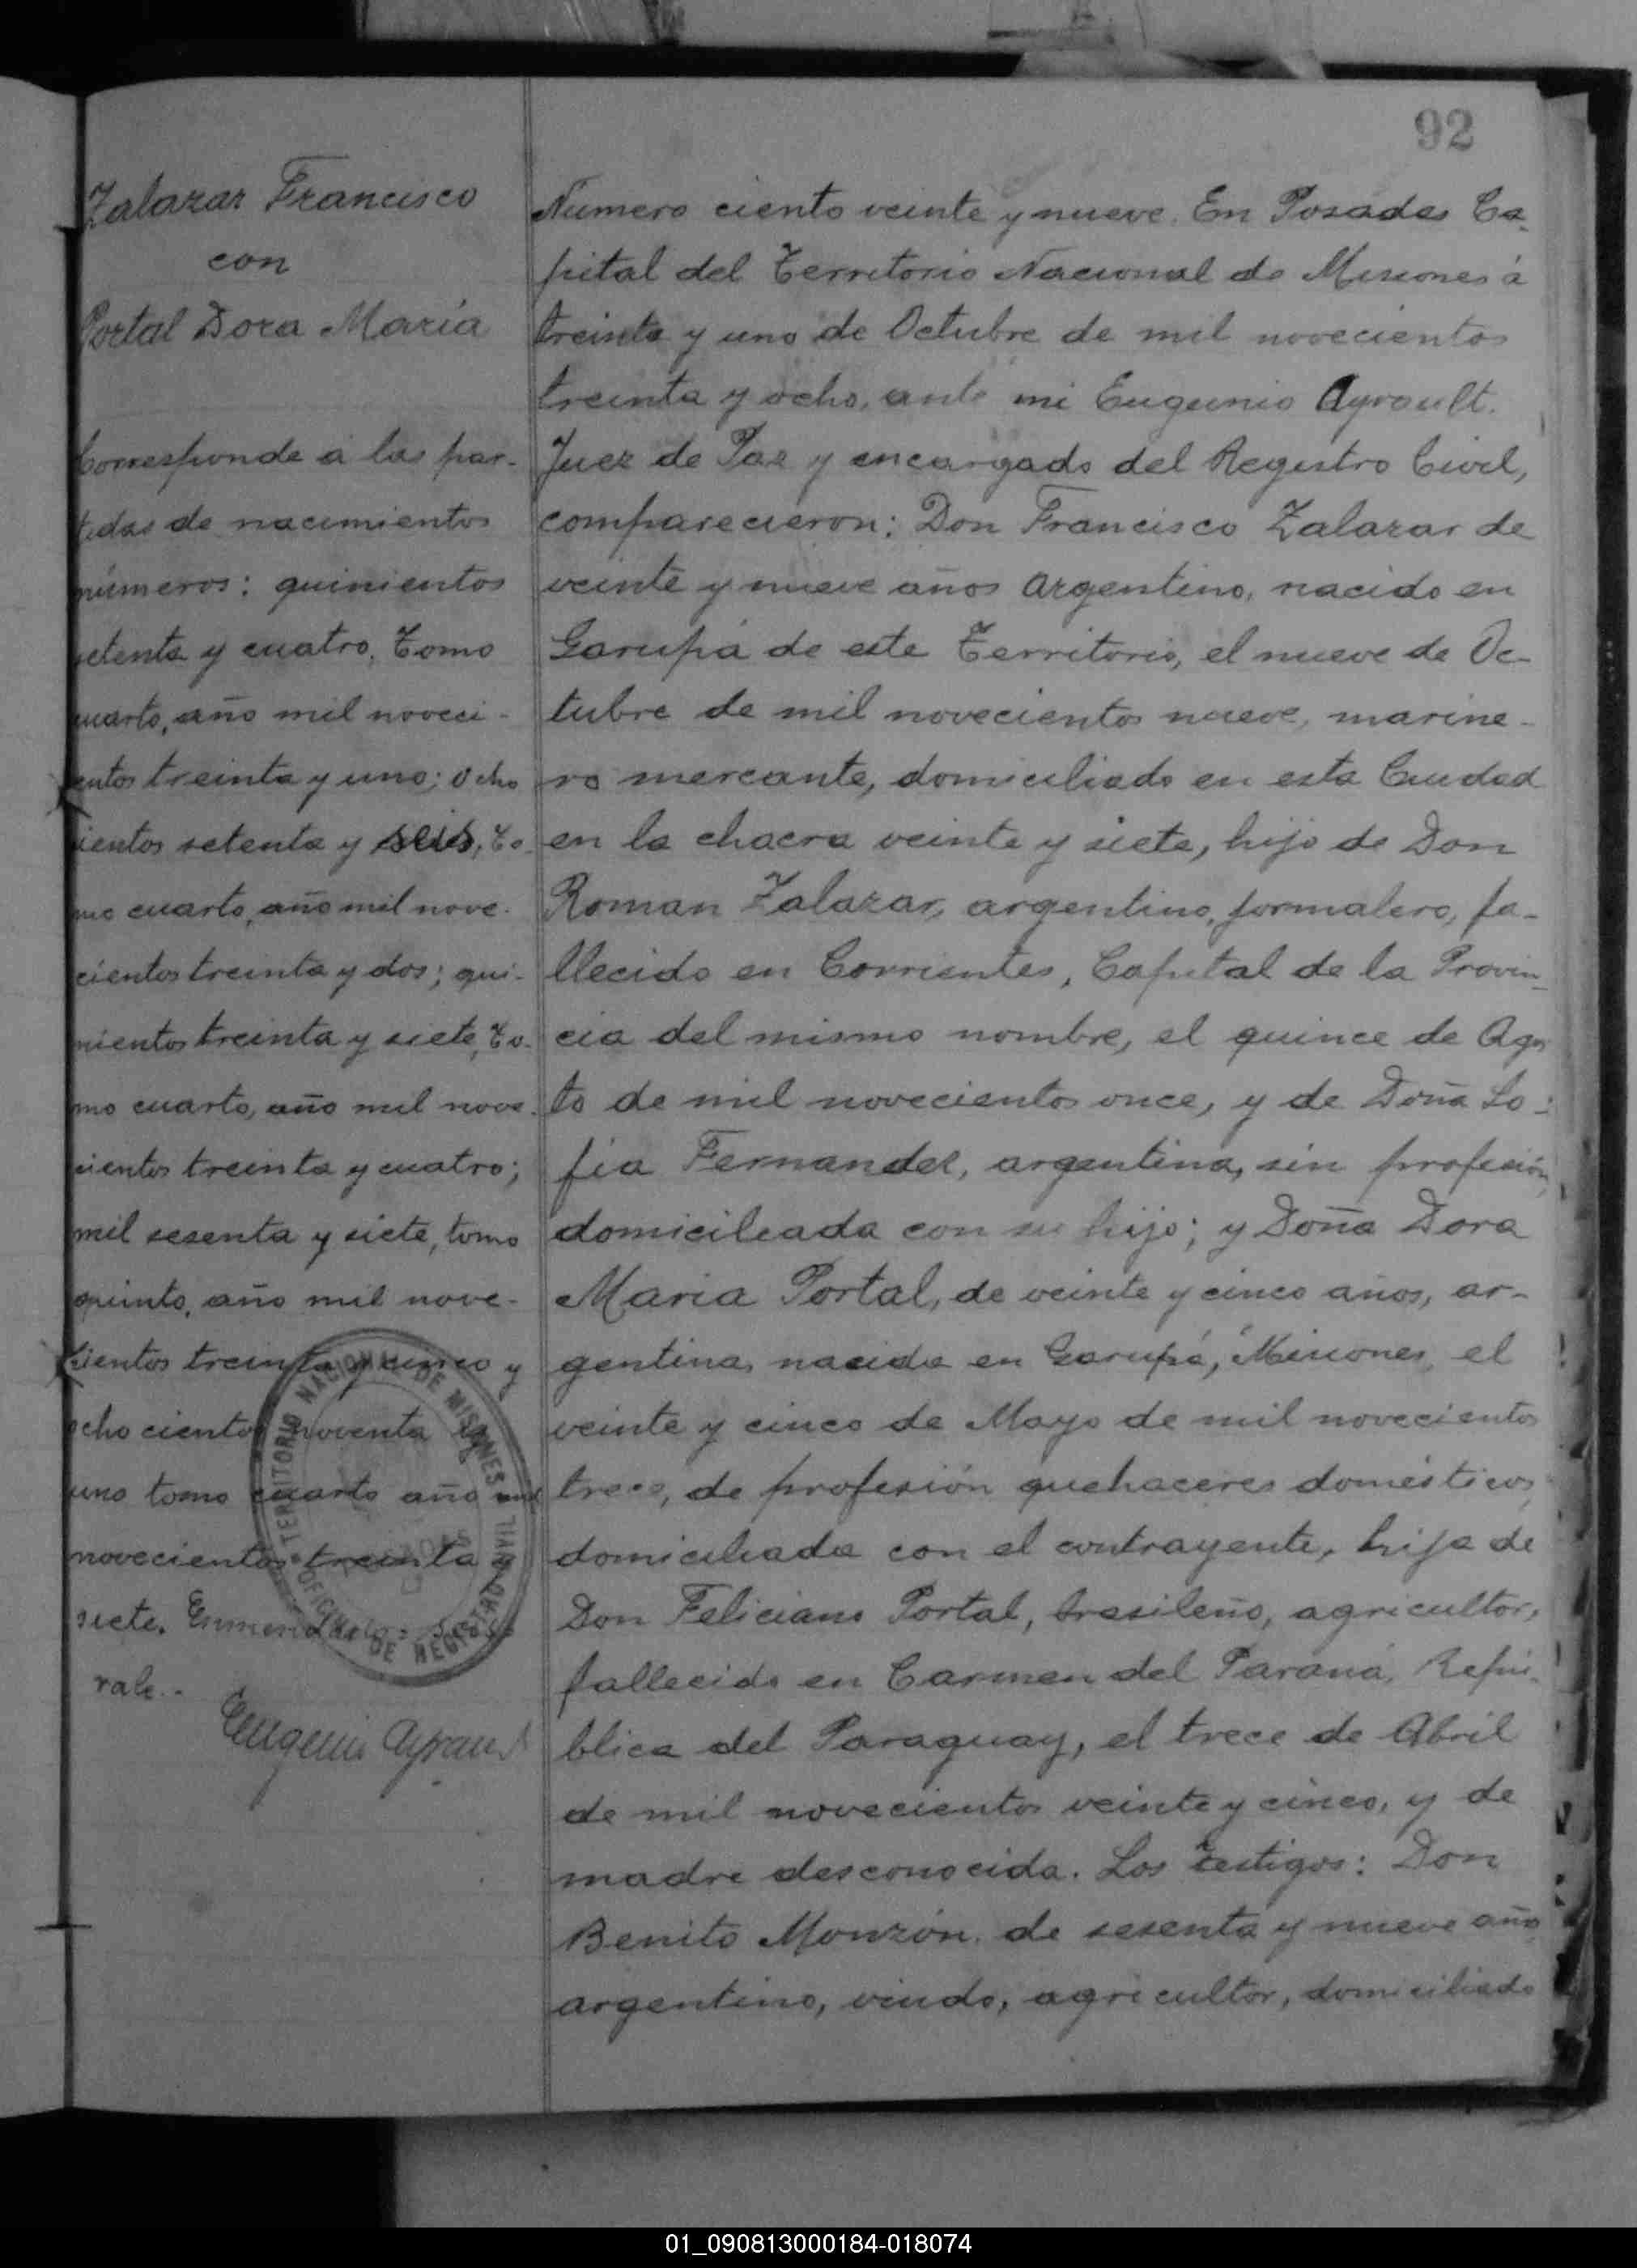 92
Zalazar Francisco
con
Portal Dora María
Corresponde a las par-
tidas de nacimientos
números: quinientos
setenta y cuatro, Tomo
cuarto, año mil noveci-
entos treinta y uno; ocho
cientos setenta y seis, To-
mo cuarto, año mil nove-
cientos treinta y dos; qui-
nientos treinta y siete, To-
mo cuarto, año mil nove-
cientos treinta y cuatro;
mil sesenta y siete, tomo
quinto, año mil nove-
cientos treinta y cinco y
ocho cientos noventa y
uno tomo cuarto año mil
novecientos treinta y
siete. Enmendado: seis:
vale.-
Eugenio Ayrault
TERRITORIO NACIONAL DE MISIONES
OFICINA DE REGISTRO CIVIL
Número ciento veinte y nueve. En Posadas Ca-
pital del Territorio Nacional de Misiones á
treinta y uno de Octubre de mil novecientos
treinta y ocho, ante mi Eugenio Ayroult.
Juez de Paz y encargado del Registro Civil,
comparecieron: Don Francisco Zalazar de
veinte y nueve años Argentino, nacido en
Garupá de este Territorio, el nueve de Oc-
tubre de mil novecientos nueve, marine-
ro mercante, domiciliado en esta Ciudad
en la chacra veinte y siete, hijo de Don
Roman Zalazar, argentino, jornalero, fa-
llecido en Corrientes, Capital de la Provin-
cia del mismo nombre, el quince de Agos
to de mil novecientos once, y de Doña So-
fia Fernandez, argentina, sin profesión,
domiciliada con su hijo; y Doña Dora
Maria Portal, de veinte y cinco años, ar-
gentina, nacida en Garupá, Misiones, el
veinte y cinco de Mayo de mil novecientos
trece, de profesión quehaceres domésticos,
domiciliada con el contrayente, hija de
Don Feliciano Portal, brasileño, agricultor,
fallecido en Carmen del Paraná, Repú-
blica del Paraguay, el trece de Abril
de mil novecientos veinte y cinco, y de
madre desconocida. Los testigos: Don
Benito Monzón, de sesenta y nueve años
argentino, viudo, agricultor, domiciliado
01_090813000184-018074